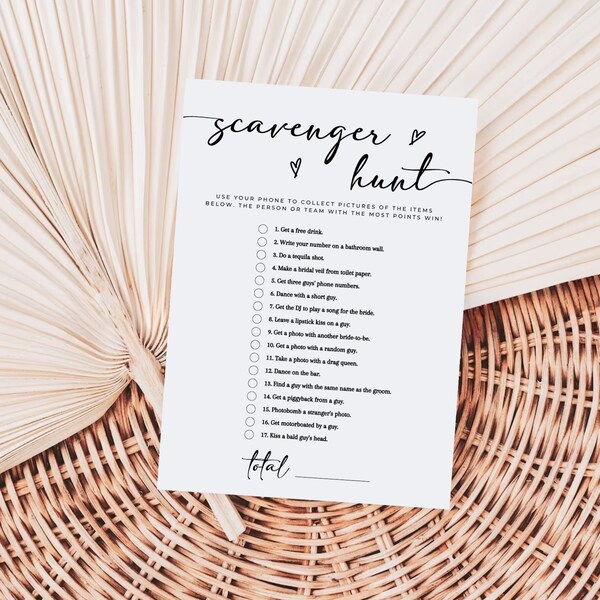 scavenger
hunt
USE YOUR PHONE TO COLLECT PICTURES OF THE ITEMS
BELOW. THE PERSON OR TEAM WITH THE MOST POINTS WIN!
1. Get a free drink.
2. Write your number on a bathroom wall.
3. Do a tequila shot.
4. Make a bridal veil from toilet paper.
5. Get three guys' phone numbers.
6. Dance with a short guy.
7. Get the DJ to play a song for the bride.
8. Leave a lipstick kiss on a guy.
9. Get a photo with another bride-to-be.
10. Get a photo with a random guy.
11. Take a photo with a drag queen.
12. Dance on the bar.
13. Find a guy with the same name as the groom.
14. Get a piggyback from a guy.
15. Photobomb a stranger's photo.
16. Get motorboated by a guy.
17. Kiss a bald guy's head.
total